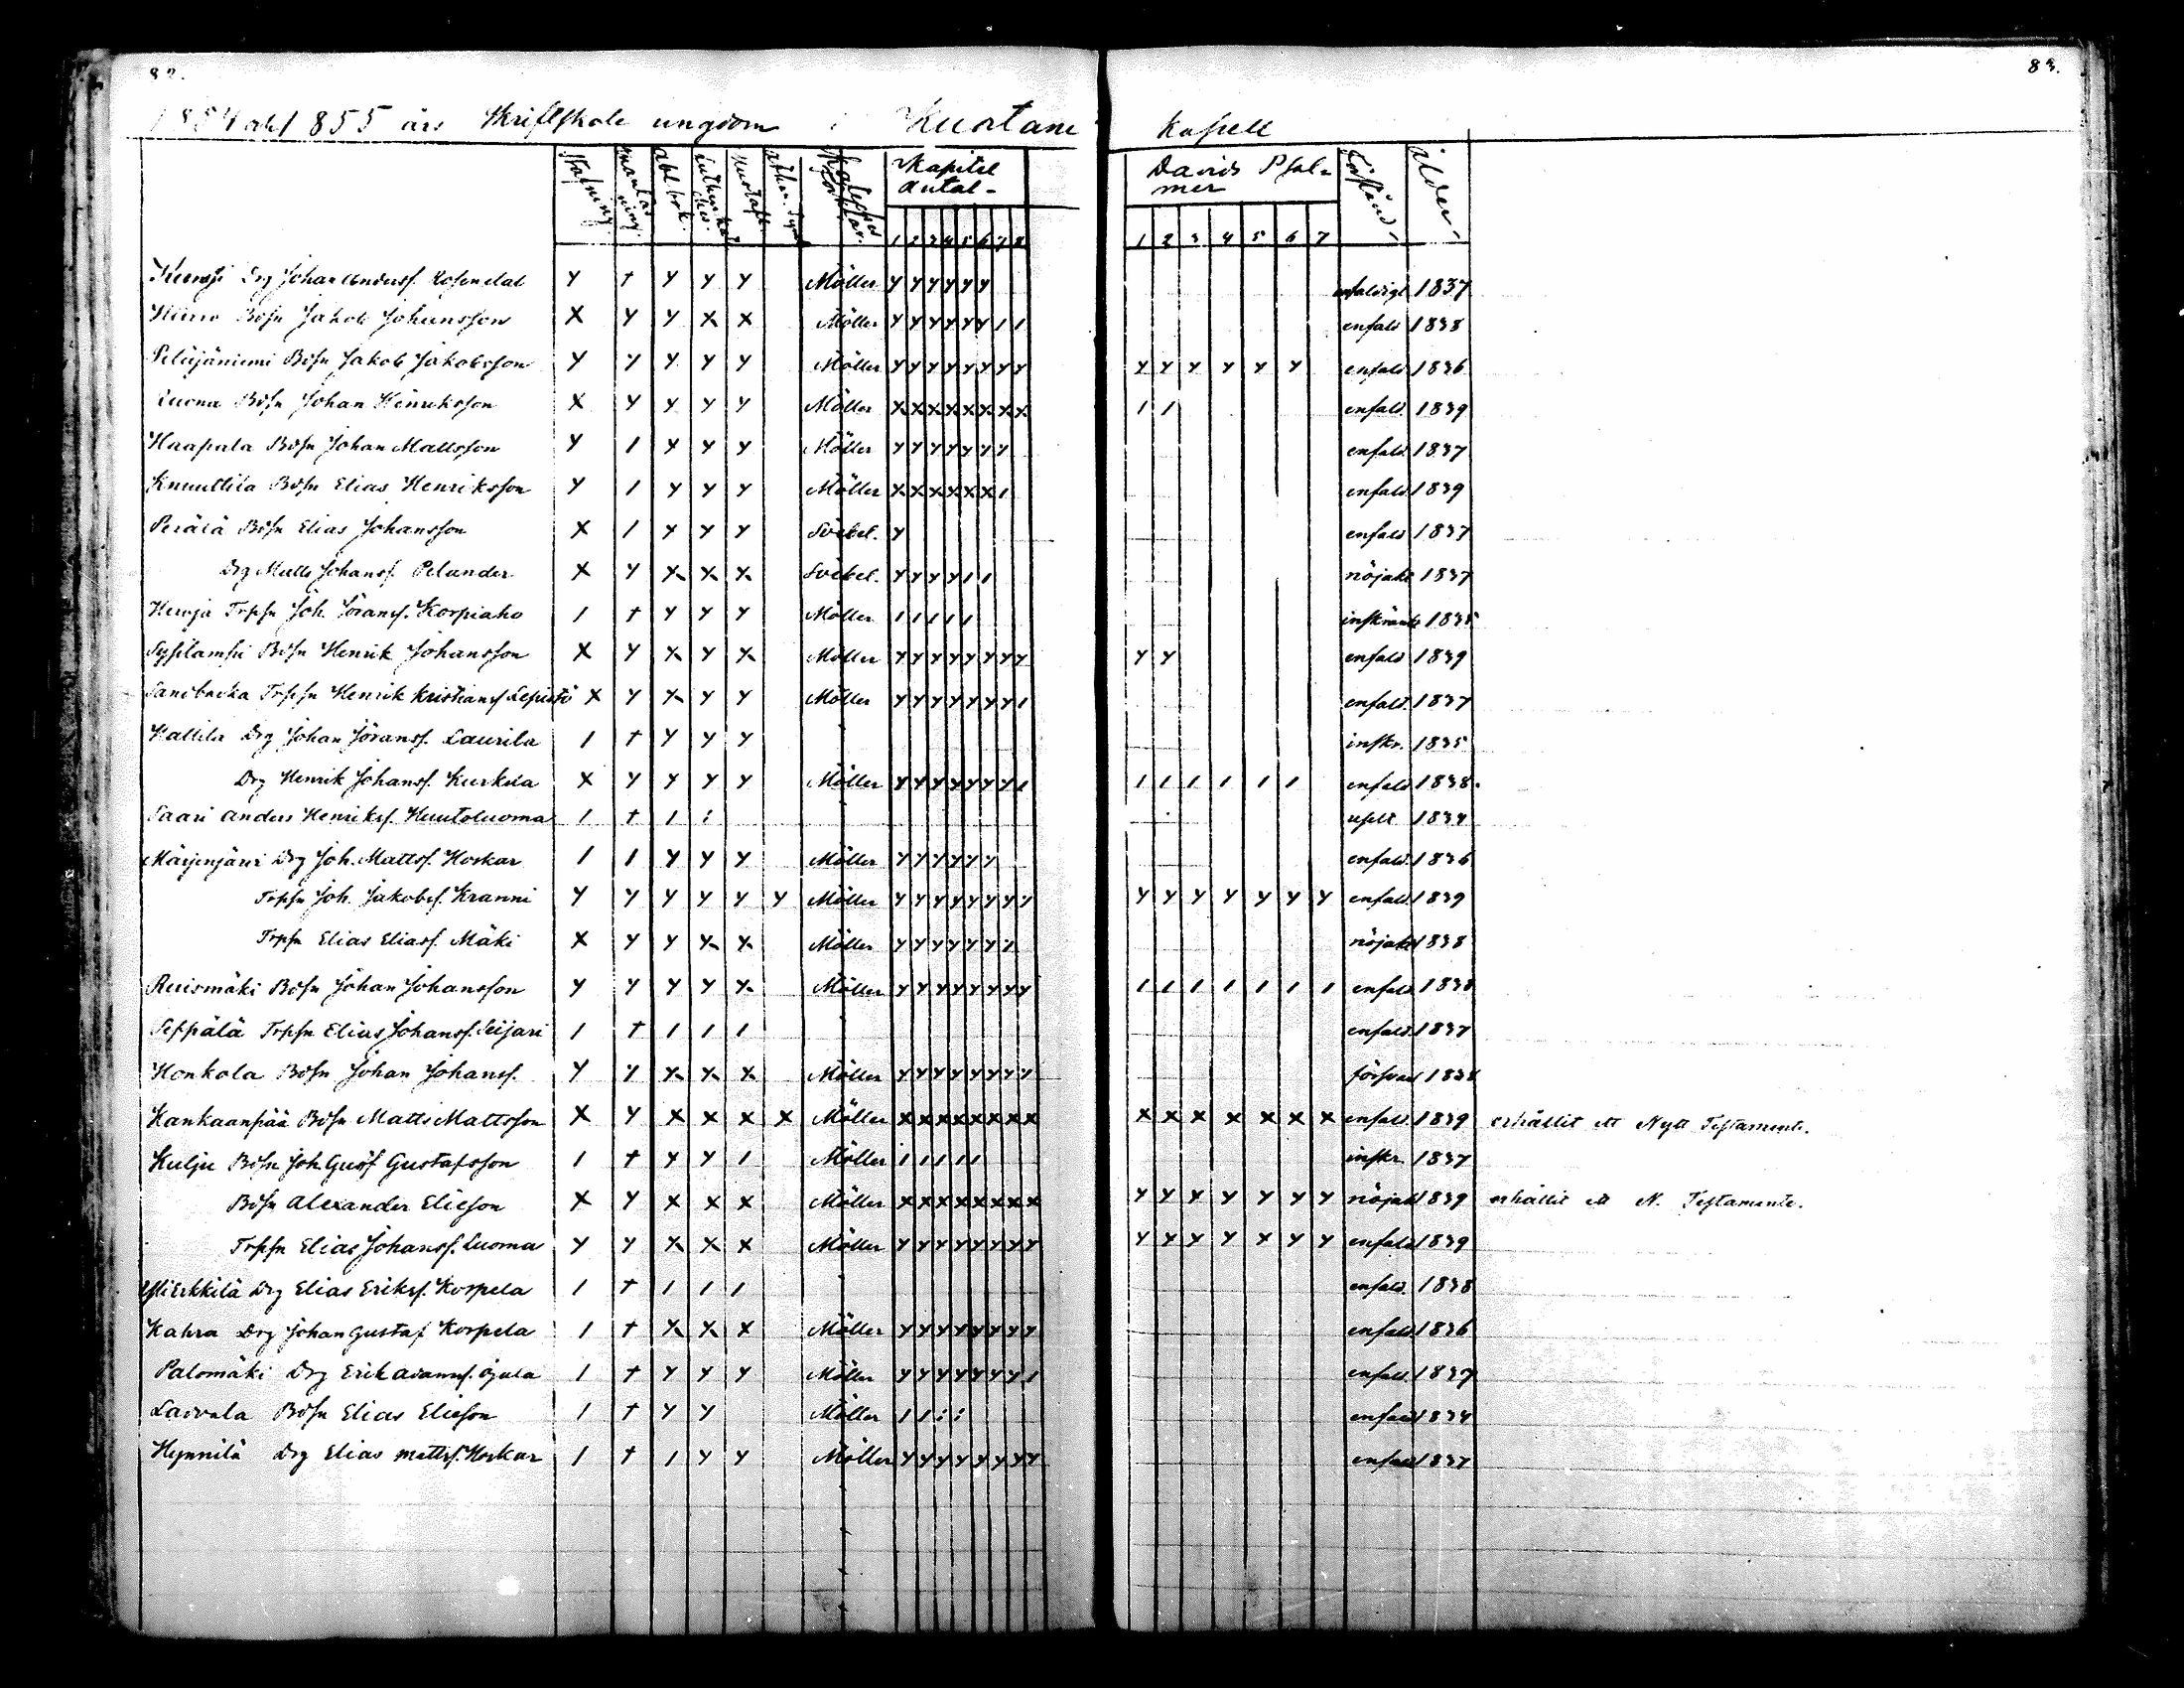 82. 83.
1854 och 1855 års Skriftskole ungdom i Kuortane Kapell
Stafning Innanläsning abl bok Luthers kat. Hustafl. Athan. Symb. Kapitel antal - David Psalmer Förstånd ålder
1 2 3 4 5 6 7 8 1 2 3 4 5 6 7
Drg Johan Andersf. Rosendal Y † Y Y Y Möller Y Y Y Y Y Y enfaldigt 1837
Bdsn Jakob Johansson X Y Y X X Möller Y Y Y Y Y Y 1 1 enfald 1838
Bdsn Jakob Jakobsson Y Y Y Y Y Möller Y Y Y Y Y Y Y Y Y Y Y Y Y Y enfald 1836
Luoma Bdsn Johan Henriksson X Y Y Y Y Möller X X X X X X X X 1 1 enfald. 1839
Haapala Bdsn Johan Mattsson Y 1 Y Y Y Möller Y Y Y Y Y Y Y enfald 1837
Knuuttila Bdsn Elias Henriksson Y 1 Y Y Y Möller X X X X X X 1 enfald 1839
Perälä Bdsn Elias Johansson X 1 Y Y Y Svebel. Y enfald 1837
Drg Matts Johansf. Pelander X Y X X X Svebel. Y Y Y Y 1 1 nöjakt 1837
Heroja Trpsn Joh. Göransf. Korpiaho 1 † Y Y Y Möller 1 1 1 1 1 inskränkt 1835
Bdsn Henrik Johansson X Y X Y X Möller Y Y Y Y Y Y Y Y Y Y enfald 1839
Sandbacka Trpsn Henrik Kristiansf Lepistö X Y X Y Y Möller Y Y Y Y Y Y Y 1 enfald. 1837
Kallila Drg Johan Göransf. Laurila 1 † Y Y Y inskr. 1835
Drg Henrik Johansf. Kurkela X Y Y Y Y Möller Y Y Y Y Y Y Y 1 1 1 1 1 1 1 enfald 1838.
Saari Anders Henriksf. Huutoluoma 1 † 1 : uselt 1834
Märjenjärvi Drg Joh. Mattsf. Koskar 1 1 Y Y Y Möller Y Y Y Y Y Y enfald. 1836
Trpsn Joh. Jakobsf. Kranni Y Y Y Y Y Y Möller Y Y Y Y Y Y Y Y Y Y Y Y Y Y Y enfald 1839
Trpsn Elias Eliasf. Mäki X Y Y X X Möller Y Y Y Y Y Y Y nöjakt 1838
Ruismäki Bdsn Johan Johansson Y Y Y Y X Möller Y Y Y Y Y Y Y Y 1 1 1 1 1 1 1 enfald. 1838
Seppälä Trpsn Elias Johansf. Seijari 1 † 1 1 1 enfald. 1837
Honkola Bdsn Johan Johansf. Y Y X X X Möller Y Y Y Y Y Y Y Y försvarl 1838
Kankaanpää Bdsn Matts Mattsson X Y X X X X Möller X X X X X X X X X X X X X X X enfald. 1839 erhållit ett Nytt Testamente.
Kulju Bdsn Joh Gust Gustafsson 1 † Y Y 1 Möller 1 1 1 1 1 inskr. 1837
Bdsn Alexander Elieson X Y X X X Möller X X X X X X X X Y Y X Y Y Y Y nöjakt 1839 erhållit ett N. Testamente.
Trpsn Elias Johansf. Luoma Y Y X X X Möller Y Y Y Y Y Y Y Y Y Y Y Y X Y Y enfald 1839
Yli Erkkilä Drg Elias Eriksf. Korpela 1 † 1 1 1 enfald. 1838
Kahra Drg Johan Gustaf Korpela 1 † X X X Möller Y Y Y Y Y Y Y Y enfald 1836
Palomäki Drg Erik Adamsf. Ojala 1 † Y Y Y Möller Y Y Y Y Y Y Y 1 enfald. 1837
Bdsn Elias Elieson 1 † Y Y Möller 1 1 : : enfald 1834
Hynnilä Drg Elias Mattsf. Koskar 1 † 1 Y Y Möller Y Y Y Y Y Y Y Y enfald 1837